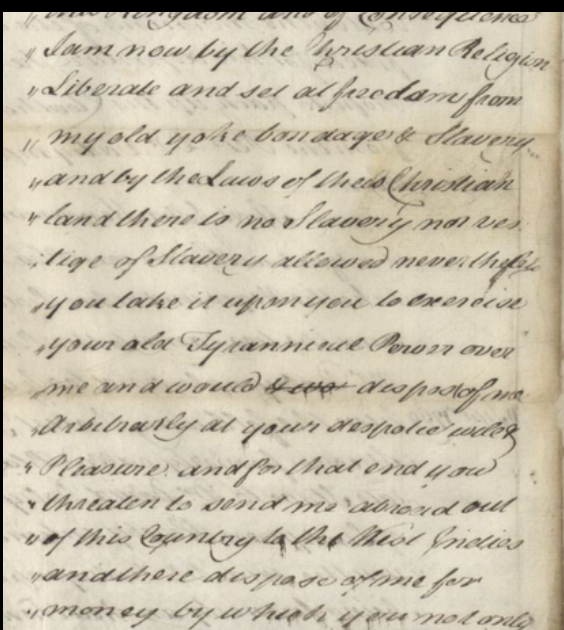 this Kingdom and of Consequence
" I am now by the Christian Religion
" Liberate and set at freedom from
" my old yoke bondage & Slavery
" and by the Laws of this Christian
" land there is no Slavery nor ves
" tige of Slavery allowed nevertheless
" you take it upon you to exercise
" your old Tyrannical Power over
" me and would dispose of me
" Arbitrarly at your despotic will &
" Pleasure and for that end you
" threaten to send me abroad out
" of this Country to the West Indies
" and there dispose of me for
" money by which you not only